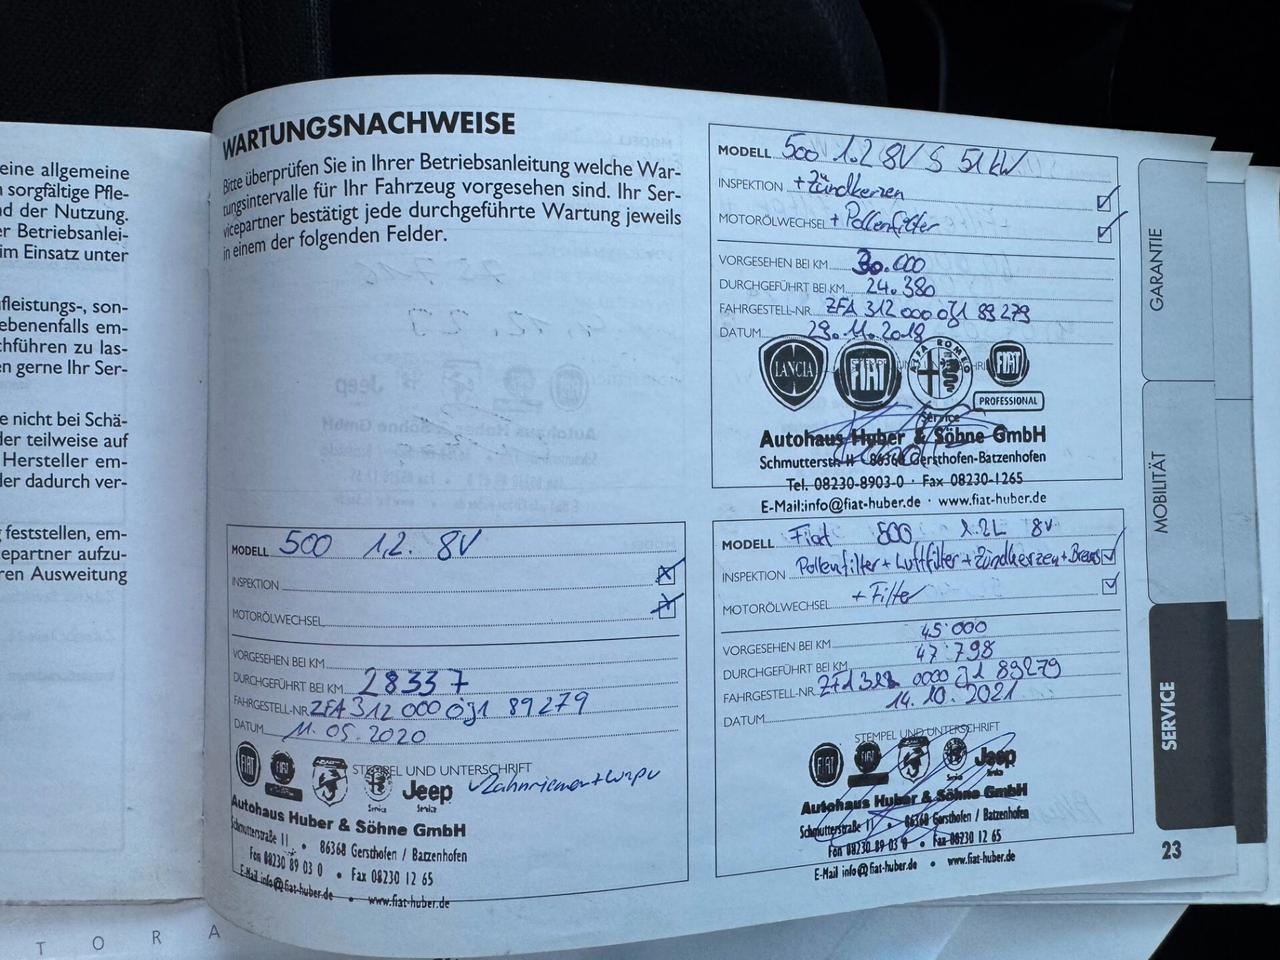 eine allgemeine
sorgfältige Pfle-
nd der Nutzung.
er Betriebsanlei-
im Einsatz unter
fleistungs-, son-
ebenenfalls em-
chführen zu las-
en gerne Ihr Ser-
e nicht bei Schä-
der teilweise auf
Hersteller em-
der dadurch ver-
feststellen, em-
epartner aufzu-
ren Ausweitung
T O R A
WARTUNGSNACHWEISE
Bitte überprüfen Sie in Ihrer Betriebsanleitung welche War-
tungsintervalle für Ihr Fahrzeug vorgesehen sind. Ihr Ser-
vicepartner bestätigt jede durchgeführte Wartung jeweils
in einem der folgenden Felder.
MODELL 500 1.2 8V S 51 kW
INSPEKTION + Zündkerzen
MOTORÖLWECHSEL + Pollenfilter
VORGESEHEN BEI KM 30.000
DURCHGEFÜHRT BEI KM 24.380
FAHRGESTELL-NR. ZFA 312 000 0J1 89279
DATUM 29.11.2018
LANCIA FIAT ALFA ROMEO FIAT
PROFESSIONAL
Service
Autohaus Huber & Söhne GmbH
Schmutterstr. 11 86368 Gersthofen-Batzenhofen
Tel. 08230-8903-0 · Fax 08230-1265
E-Mail:info@fiat-huber.de · www.fiat-huber.de
MODELL 500 1.2. 8V
INSPEKTION
MOTORÖLWECHSEL
VORGESEHEN BEI KM
DURCHGEFÜHRT BEI KM 28337
FAHRGESTELL-NR. ZFA 312 000 0J1 89279
DATUM 11.05.2020
STEMPEL UND UNTERSCHRIFT
FIAT FIAT ABARTH Service Jeep Service
Zahnriemen + Wapu
Autohaus Huber & Söhne GmbH
Schmutterstraße 11 • 86368 Gersthofen / Batzenhofen
Fon 08230 89 03 0 • Fax 08230 12 65
E-Mail info@fiat-huber.de • www.fiat-huber.de
MODELL Fiat 500 1.2L 8V
INSPEKTION Pollenfilter + Luftfilter + Zündkerzen + Brems
MOTORÖLWECHSEL + Filter
VORGESEHEN BEI KM 45.000
DURCHGEFÜHRT BEI KM 47.798
FAHRGESTELL-NR. ZFA 312 0000 J1 89279
DATUM 14.10.2021
STEMPEL UND UNTERSCHRIFT
FIAT Service Jeep Service
Autohaus Huber & Söhne GmbH
Schmutterstraße 11 • 86368 Gersthofen / Batzenhofen
Fon 08230 89 03 0 • Fax 08230 12 65
E-Mail info@fiat-huber.de • www.fiat-huber.de
GARANTIE
MOBILITÄT
SERVICE
23